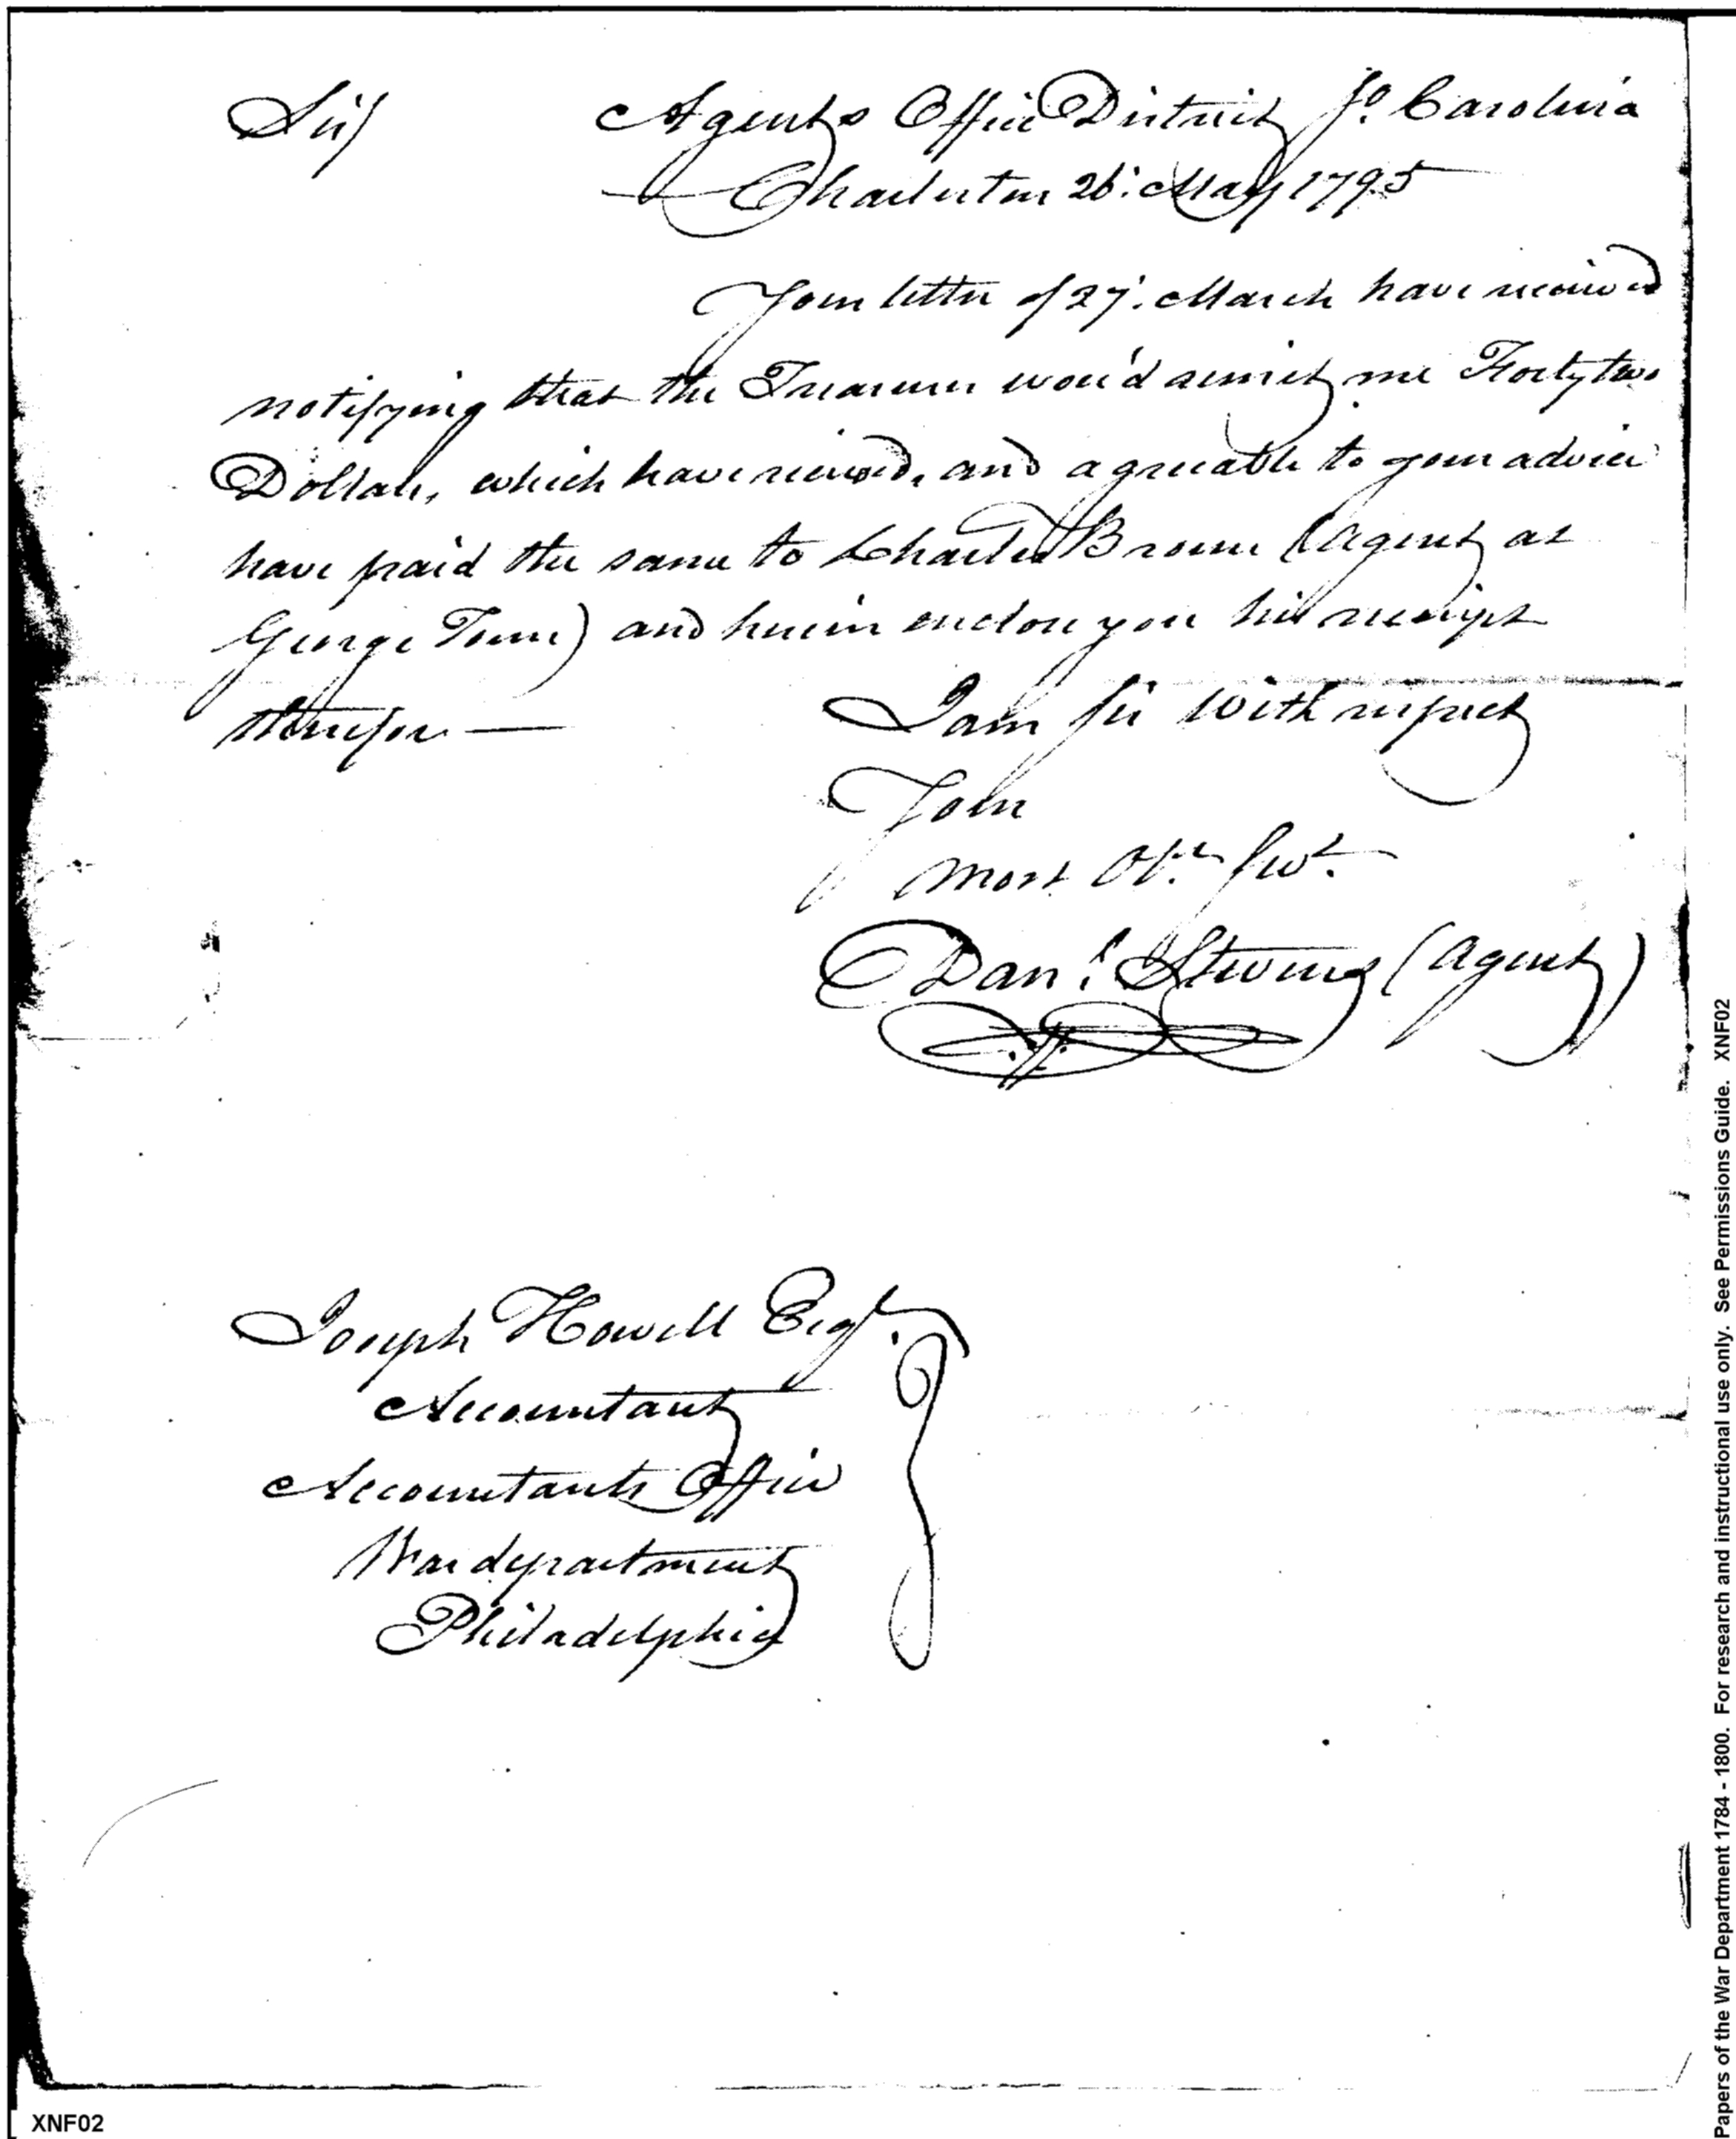 Sir/ Agents Office District So. Carolina
Charleston 26: May 1795
Your letter of 27: March have received
notifying that the Treasurer wou'd remit me Forty two
Dollars, which have received, and agreeable to your advice
have paid the same to Charles Brown (Agent at
George Town) and herein enclose you his receipt
therefor —
I am Sir with respect
Your
most Obt. Servt.
Danl. Stevens (Agent)
Joseph Howell Esqr.
Accountant
Accountants Office
War department
Philadelphia
Papers of the War Department 1784 - 1800. For research and instructional use only. See Permissions Guide. XNF02
XNF02